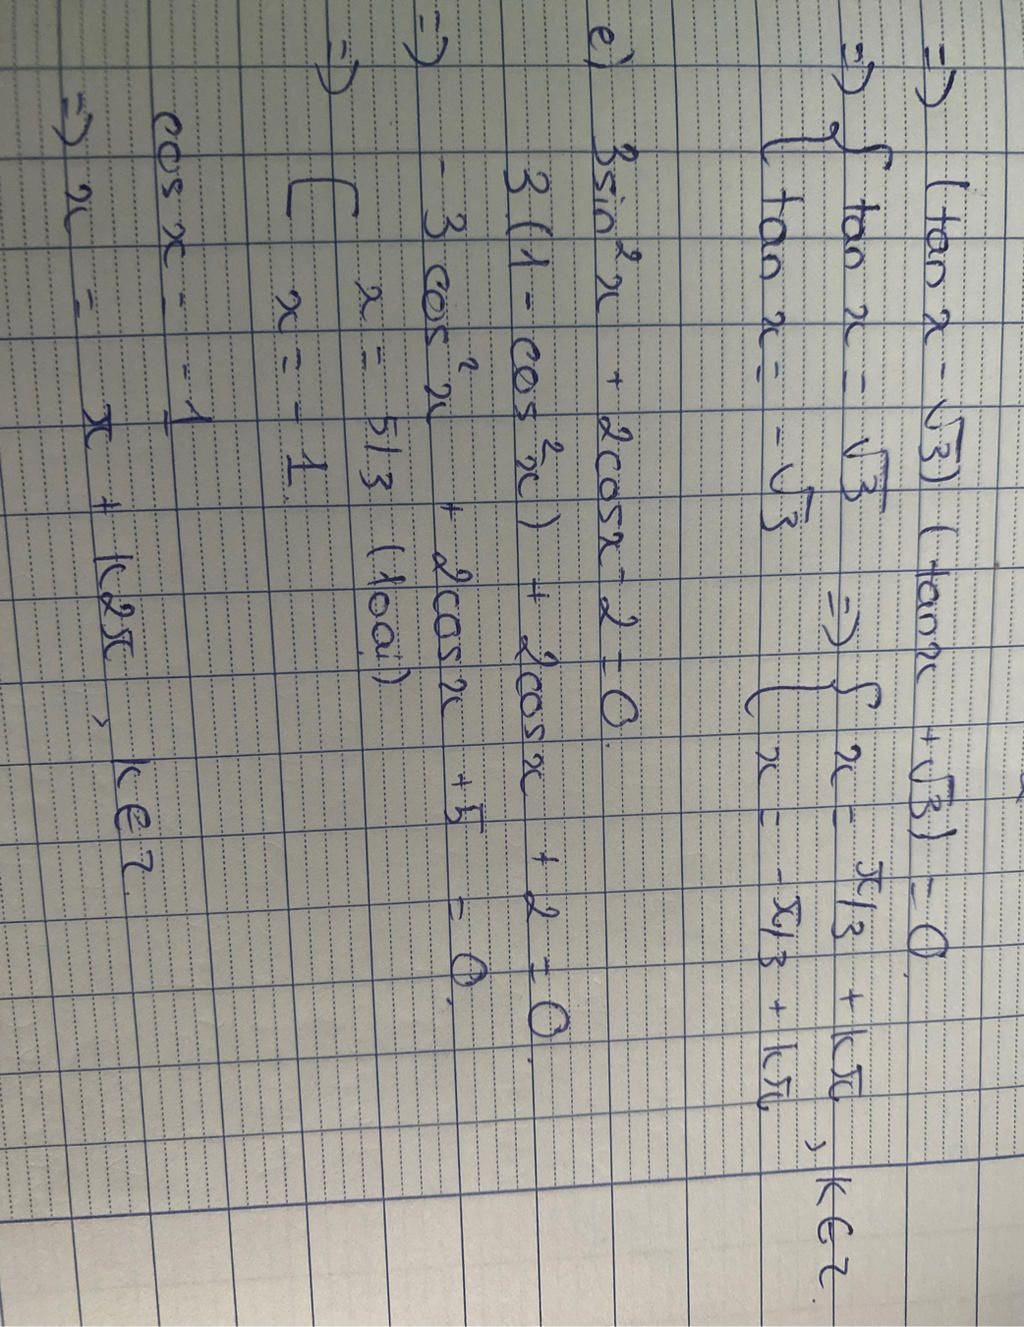 => (tan x - √3) (tan x + √3) = 0.
=> { tan x = √3 => { x = π/3 + kπ
{ tan x = - √3 { x = - π/3 + kπ , k ∈ Z.
e) 3sin²x + 2cosx - 2 = 0.
3 (1 - cos²x) + 2cosx + 2 = 0.
=> - 3 cos²x + 2cosx + 5 = 0.
=> [ x = 5/3 (loại)
x = - 1.
cos x = - 1
=> x = π + k2π , k ∈ Z.